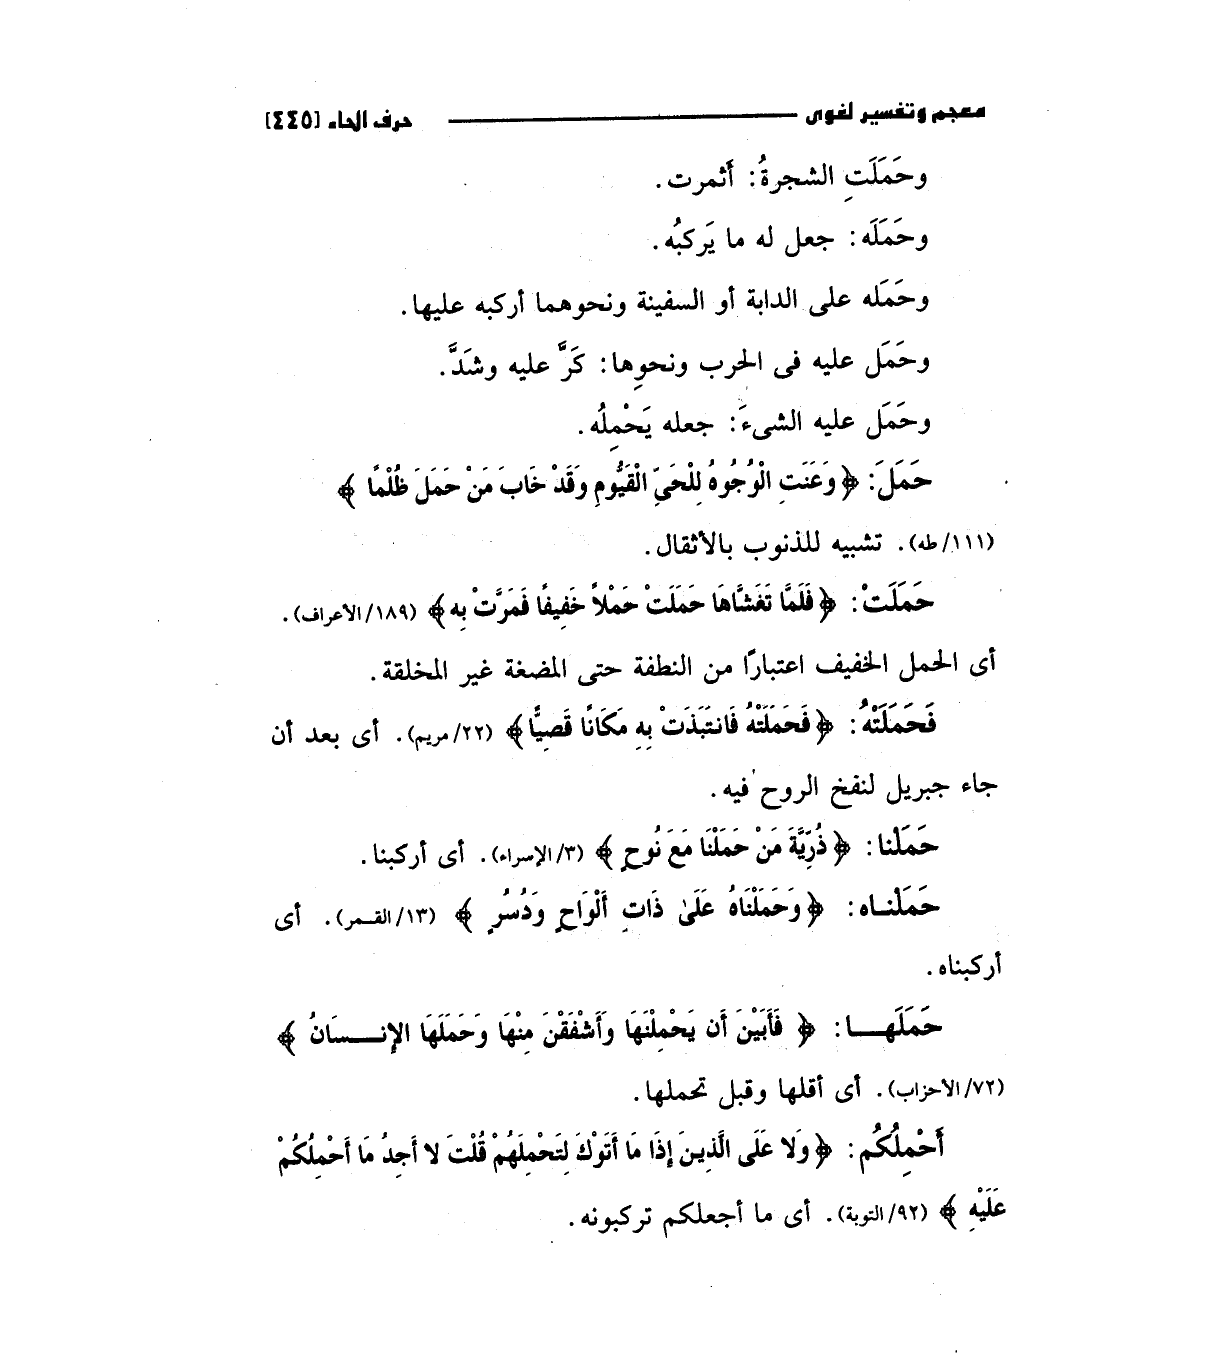 معجم وتفسير لغوى ــــــــــ حرف الحاء [٤٤٥]
وحَمَلَتِ الشجرةُ: أثمرت.
وحَمَلَه: جعل له ما يَركبُه.
وحَمَله على الدابة أو السفينة ونحوهما أركبه عليها.
وحَمَل عليه فى الحرب ونحوِها: كَرَّ عليه وشَدَّ.
وحَمَل عليه الشىءَ: جعله يَحْمِلُه.
حَمَلَ: ﴿وَعَنَتِ الْوُجُوهُ لِلْحَيِّ الْقَيُّومِ وَقَدْ خَابَ مَنْ حَمَلَ ظُلْمًا ﴾
(١١١/طه). تشبيه للذنوب بالأثقال.
حَمَلَتْ: ﴿فَلَمَّا تَغَشَّاهَا حَمَلَتْ حَمْلاً خَفِيفًا فَمَرَّتْ بِه﴾ (١٨٩/الأعراف).
أى الحمل الخفيف اعتبارًا من النطفة حتى المضغة غير المخلقة.
فَحَمَلَتْهُ: ﴿فَحَمَلَتْهُ فَانتَبَذَتْ بِهِ مَكَانًا قَصِيًّا﴾ (٢٢/مريم). أى بعد أن
جاء جبريل لنفخ الروح فيه.
حَمَلْنا: ﴿ذُرِّيَّةَ مَنْ حَمَلْنَا مَعَ نُوحٍ ﴾ (٣/الإسراء). أى أركبنا.
حَمَلْنـاه: ﴿وَحَمَلْنَاهُ عَلَىٰ ذَاتِ أَلْوَاحٍ وَدُسُرٍ ﴾ (١٣/القـمر). أى
أركبناه.
حَمَلَهــا: ﴿ فَأَبَيْنَ أَن يَحْمِلْنَهَا وَأَشْفَقْنَ مِنْهَا وَحَمَلَهَا الإِنــسَانُ ﴾
(٧٢/الأحزاب). أى أقلها وقبل تحملها.
أَحْمِلُكُم: ﴿وَلا عَلَى الَّذِينَ إِذَا مَا أَتَوْكَ لِتَحْمِلَهُمْ قُلْتَ لا أَجِدُ مَا أَحْمِلُكُمْ
عَلَيْهِ ﴾ (٩٢/التوبة). أى ما أجعلكم تركبونه.